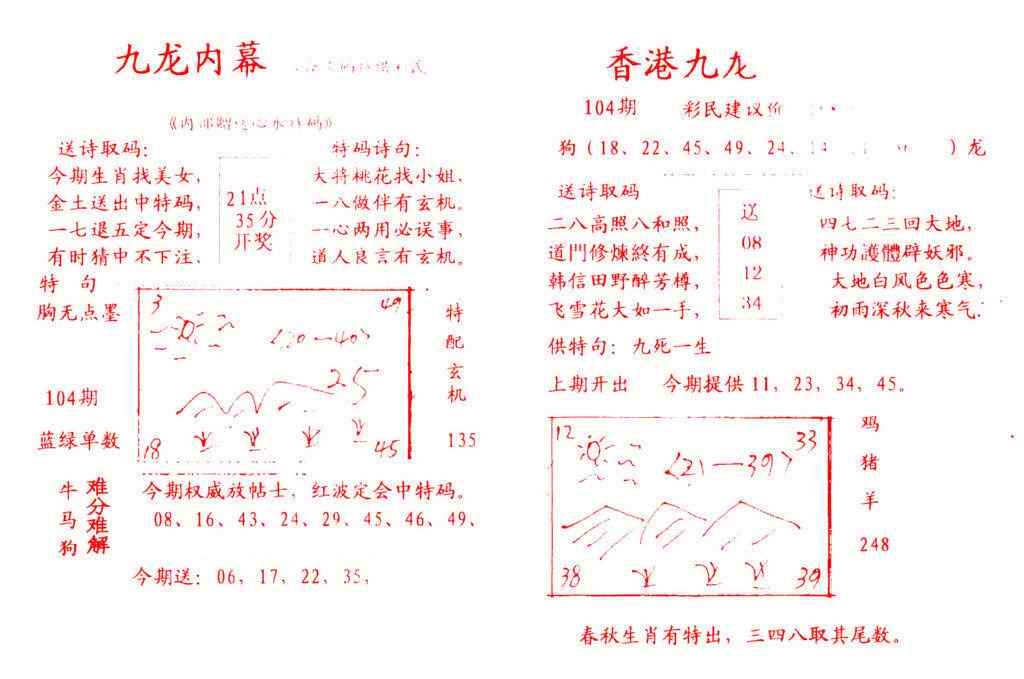 九龙内幕
送诗取码：
今期生肖找美女，
金土送出中特码，
一七退五定今期，
有时猜中不下注，
21点
35分
开奖
特码诗句：
大将桃花找小姐、
一八做伴有玄机。
一心两用必误事，
道人良言有玄机。
特 句
胸无点墨
104期
蓝绿单数
3
49
〈20—40〉
25
18
45
特
配
玄
机
135
牛
马
狗
难分难解
今期权威放帖士，红波定会中特码。
08、16、43、24、29、45、46、49、
今期送：06，17，22，35，
香港九龙
104期 彩民建议价
狗（18、22、45、49、24、 ）龙
送诗取码
二八高照八和照，
道門修煉終有成，
韩信田野醉芳樽，
飞雪花大如一手，
送
08
12
34
送诗取码：
四七二三回大地，
神功護體辟妖邪。
大地白风色色寒，
初雨深秋来寒气.
供特句：九死一生
上期开出 今期提供11，23，34，45。
12
33
〈21—39〉
38
39
鸡
猪
羊
248
春秋生肖有特出，三四八取其尾数。